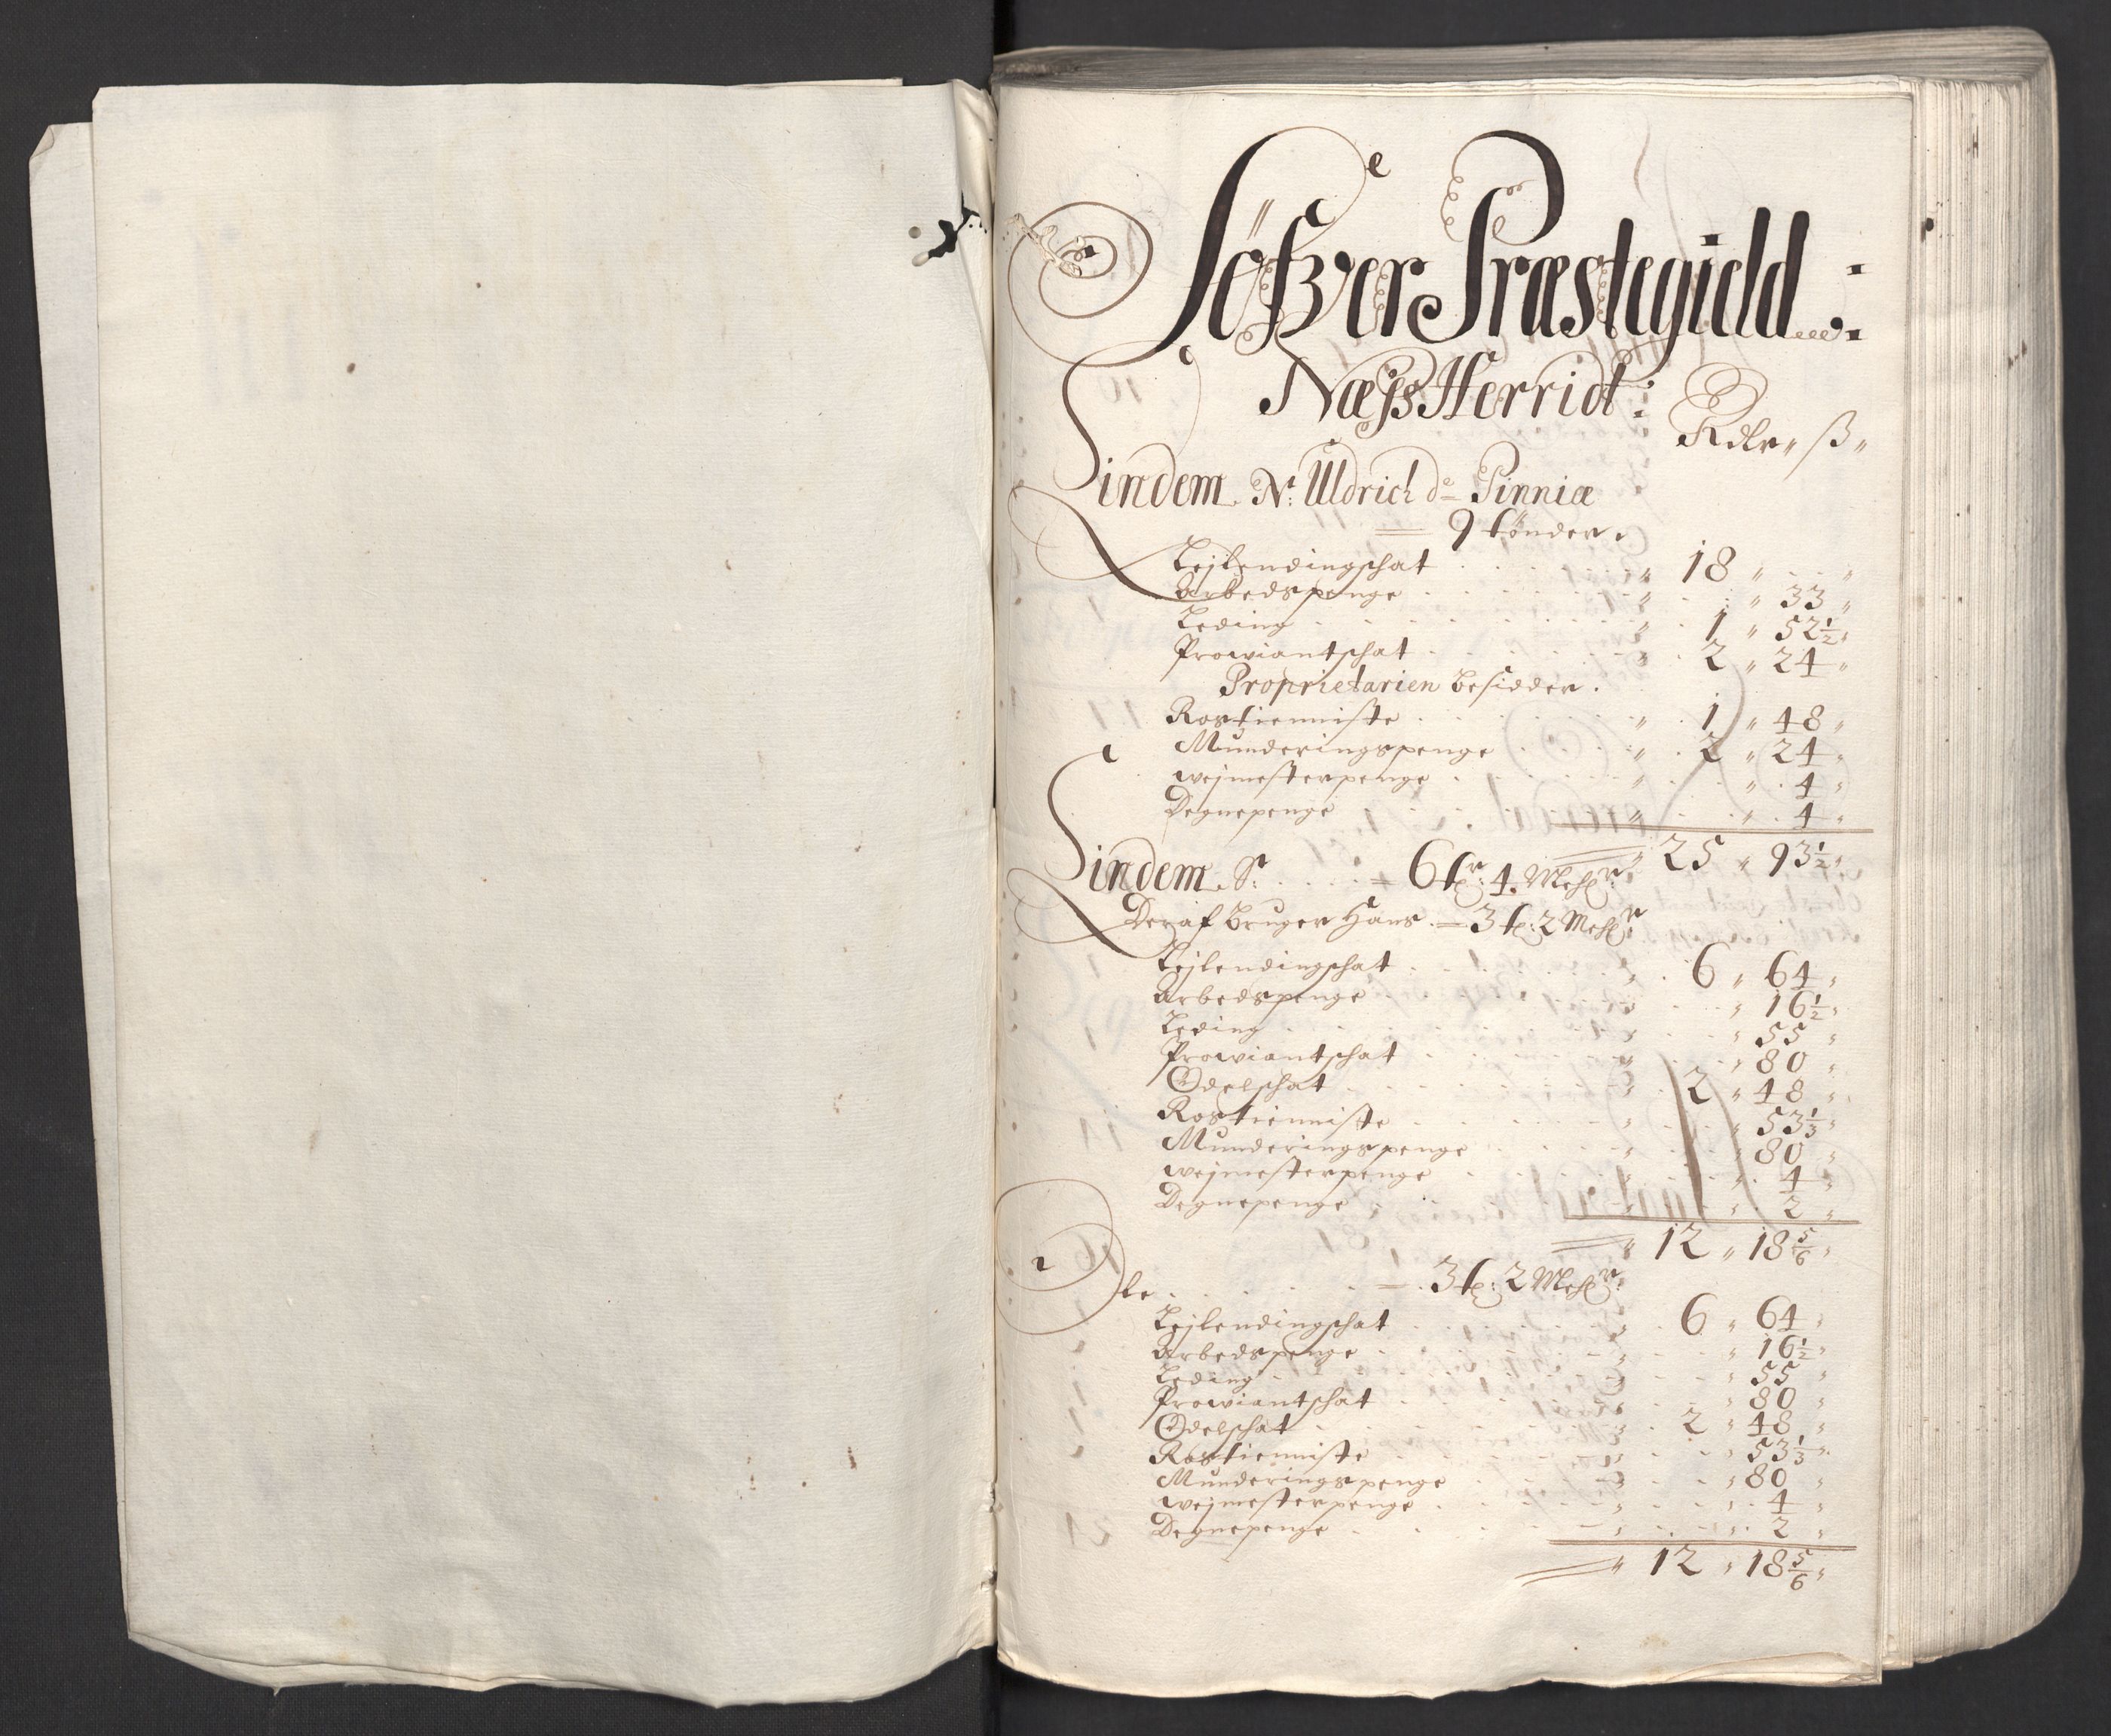 Løßver Præstegield :
Næss Herridt :
Rdlr " ß "
Lindem Nr: Uldrich de Pinniæ
= 9 tønder.
Lejlendingschat " 18 " "
Arbedspenge " " 33 "
Leding " 1 " 52½ "
Prowiantschat " 2 " 24 "
Proprietarien besidder.
Rostienniste " 1 " 48 "
Munderingspenge " 2 " 24 "
wejmesterpenge " " 4 "
Degnepenge " " 4 "
" 25 " 93½ "
Lindem Sr: = 6 tr: 4. Mehlr:
Deraf bruger Hans = 3 t: 2 Mehlr
Lejlendingschat " 6 " 64 "
Arbedspenge " " 16½ "
Leding " " 55 "
Prowiantschat " " 80 "
Odelschat " 2 " 48 "
Rostienniste " " 53⅓ "
Munderingspenge " " 80 "
wejmesterpenge " " 4 "
Degnepenge " " 2 "
" 12 " 18⅚ "
Ole = 3 t: 2 Mehlr:
Lejlendingschat " 6 " 64 "
Arbedspenge " " 16½ "
Leding " " 55 "
Prowiantschat " " 80 "
Odelschat " 2 " 48 "
Rostienniste " " 53⅓ "
Munderingspenge " " 80 "
wejmesterpenge " " 4 "
Degnepenge " " 2 "
" 12 " 18⅚ "